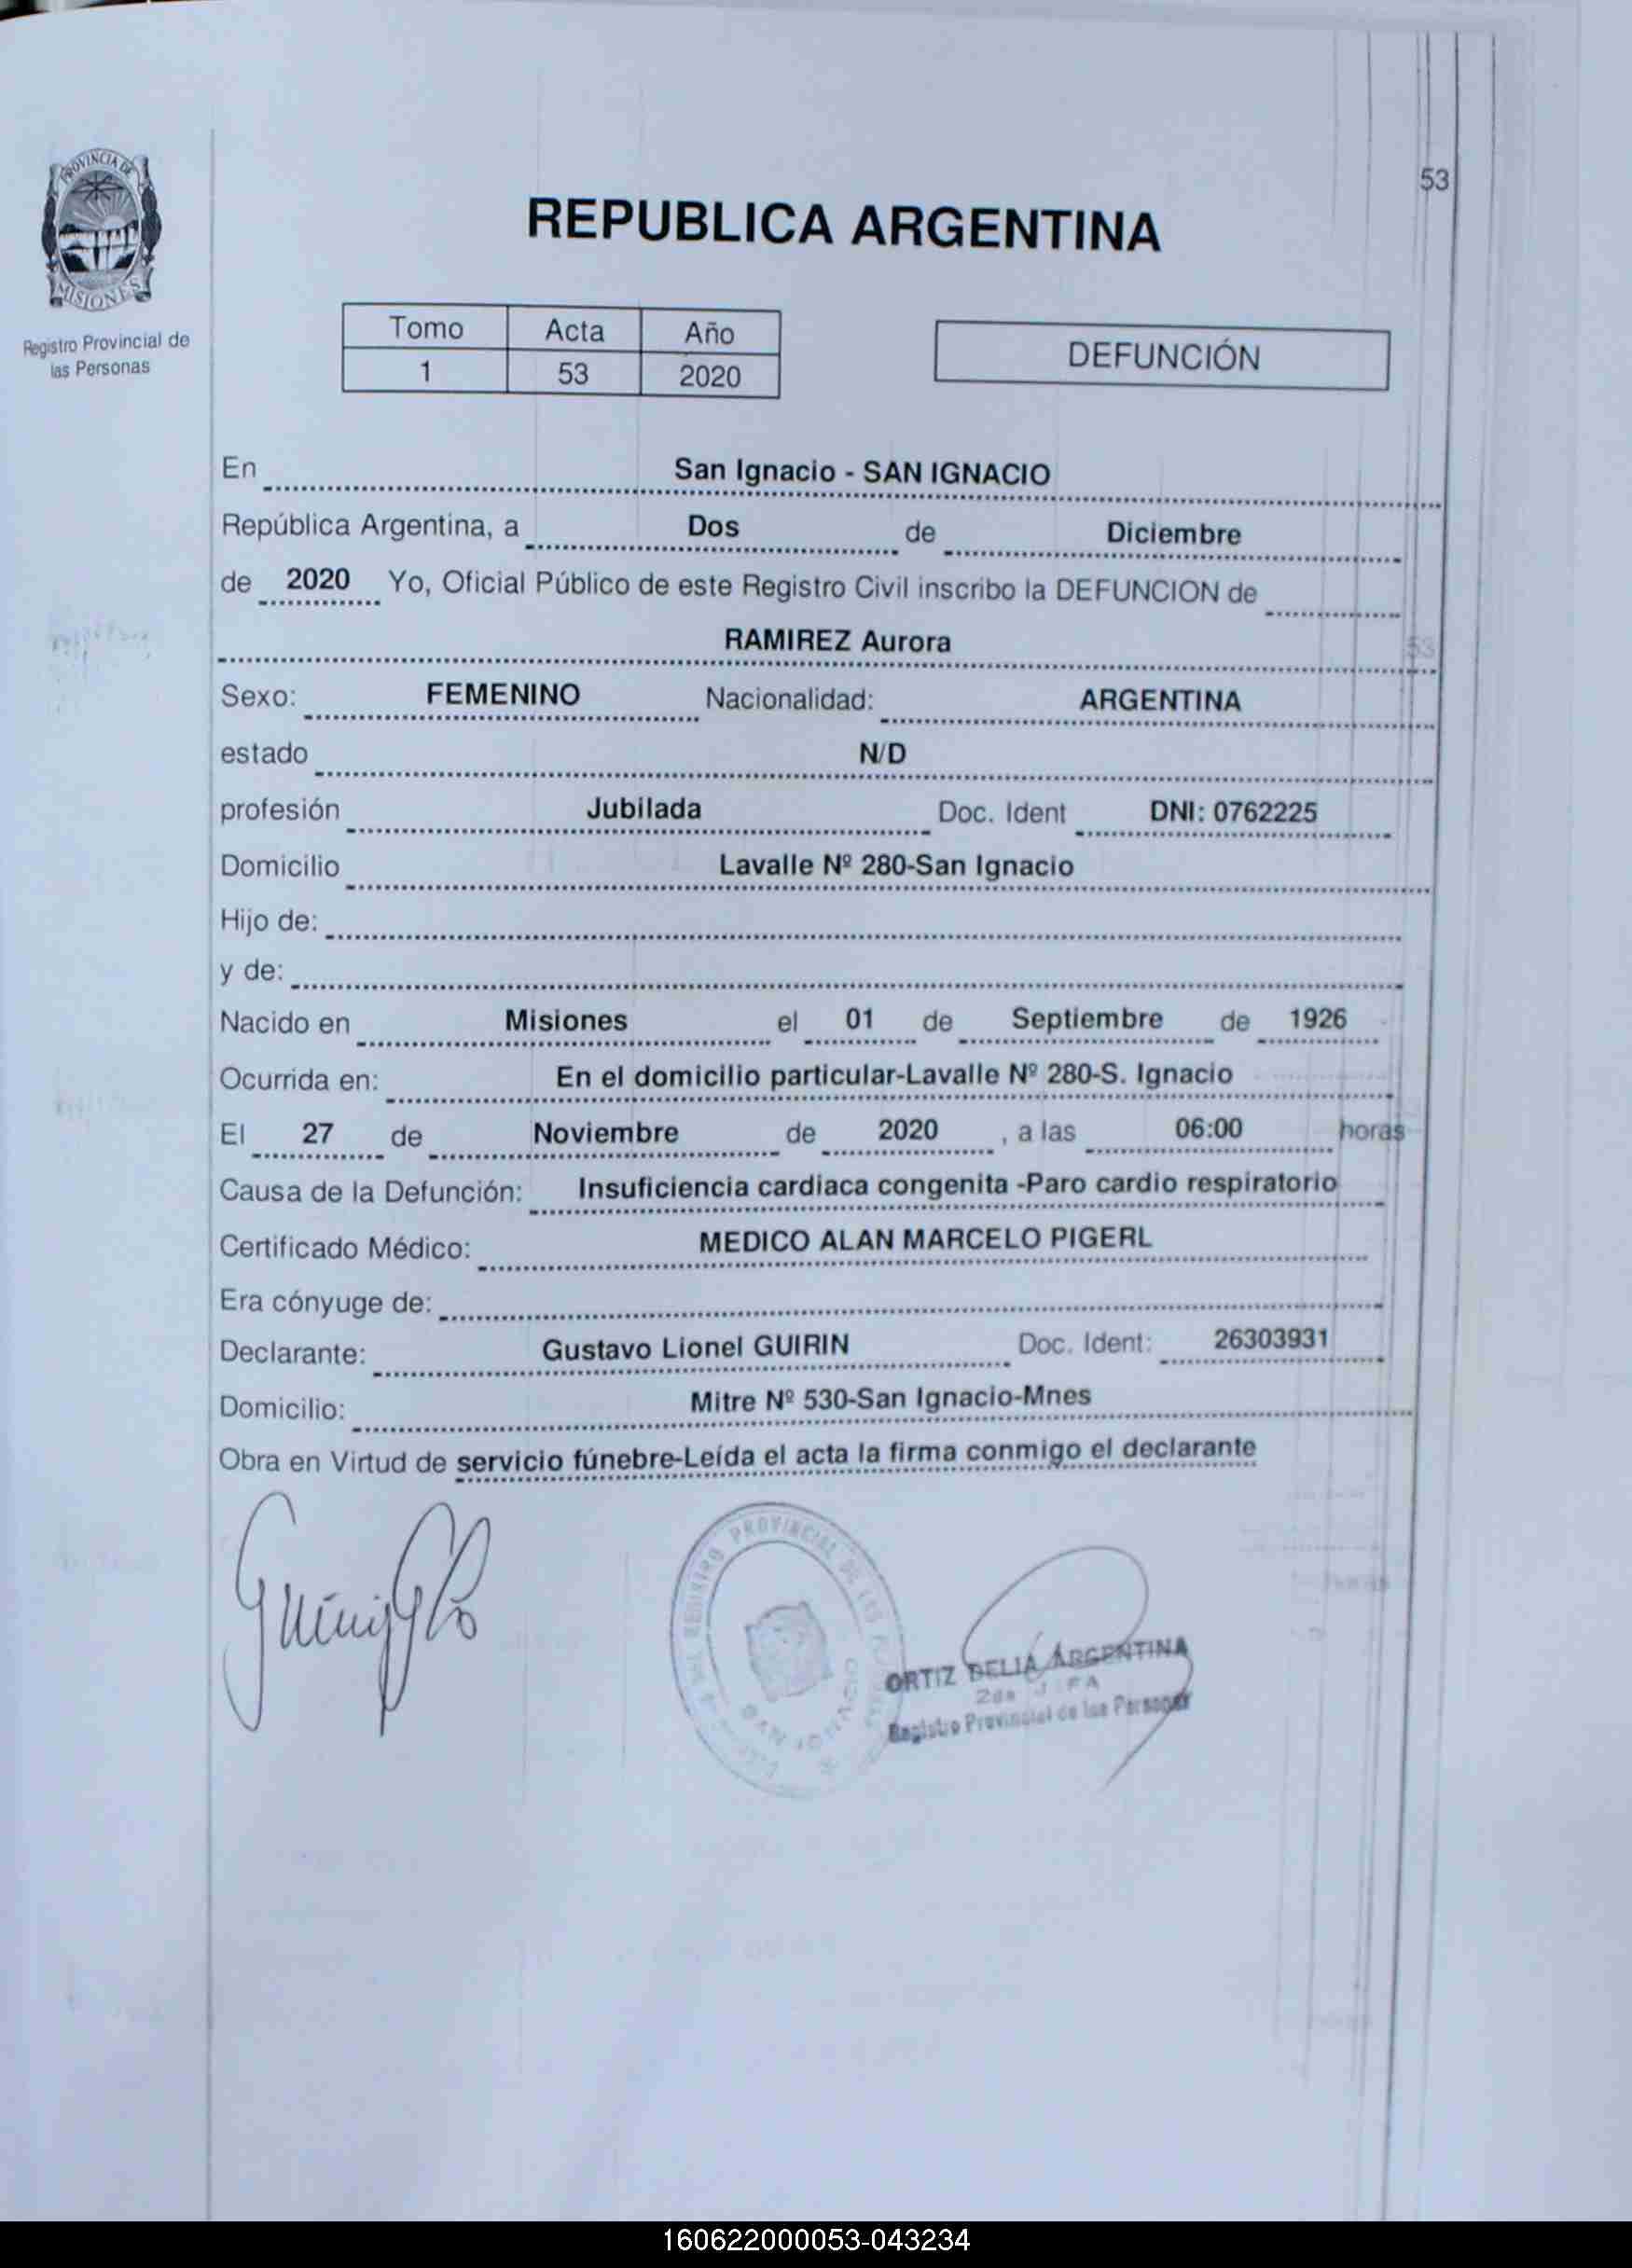 53
PROVINCIA DE
MISIONES
Registro Provincial de
las Personas
REPUBLICA ARGENTINA
Tomo Acta Año
1 53 2020
DEFUNCIÓN
En San Ignacio - SAN IGNACIO
República Argentina, a Dos de Diciembre
de 2020 Yo, Oficial Público de este Registro Civil inscribo la DEFUNCION de
RAMIREZ Aurora
53
Sexo: FEMENINO Nacionalidad: ARGENTINA
estado N/D
profesión Jubilada Doc. Ident DNI: 0762225
Domicilio Lavalle Nº 280-San Ignacio
Hijo de:
y de:
Nacido en Misiones el 01 de Septiembre de 1926
Ocurrida en: En el domicilio particular-Lavalle Nº 280-S. Ignacio
El 27 de Noviembre de 2020 , a las 06:00 horas
Causa de la Defunción: Insuficiencia cardiaca congenita -Paro cardio respiratorio
Certificado Médico: MEDICO ALAN MARCELO PIGERL
Era cónyuge de:
Declarante: Gustavo Lionel GUIRIN Doc. Ident: 26303931
Domicilio: Mitre Nº 530-San Ignacio-Mnes
Obra en Virtud de servicio fúnebre-Leída el acta la firma conmigo el declarante
REGISTRO PROVINCIAL DE LAS
SAN IGNACIO
ORTIZ DELIA ARGENTINA
2da JEFA
Registro Provincial de las Personas
160622000053-043234